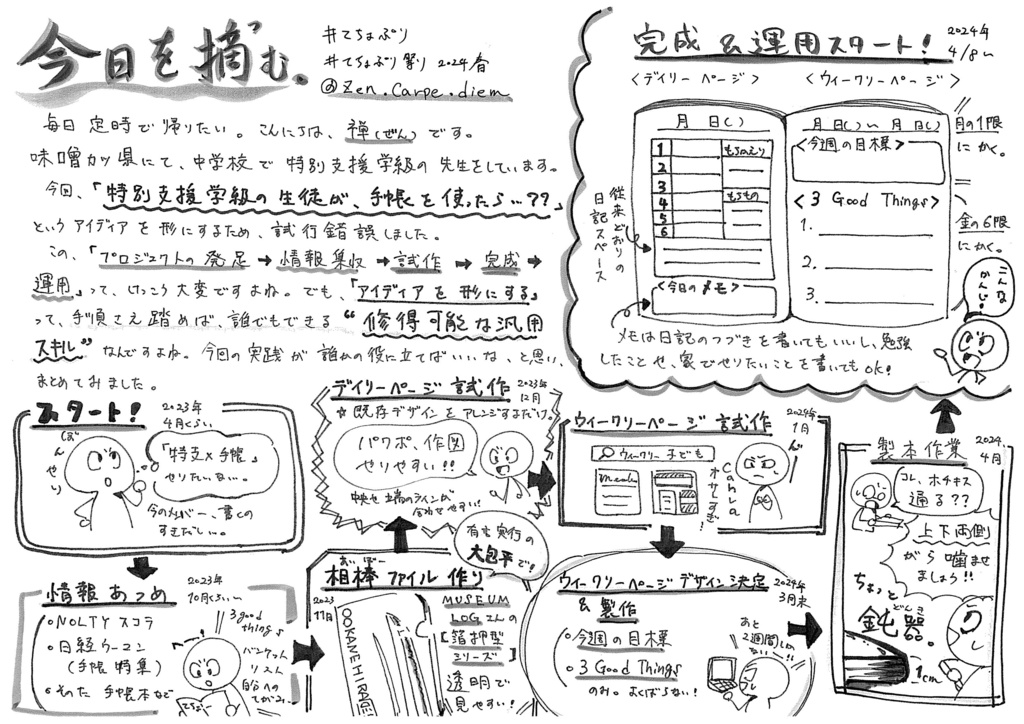 今日を摘む。
#てちょぷり
#てちょぷり祭り 2024春
@zen.carpe.diem
毎日定時で帰りたい。こんにちは、禅(ぜん)です。
味噌カツ県にて、中学校で特別支援学級の先生をしています。
今回、「特別支援学級の生徒が、手帳を使ったら…??」
というアイディアを形にするため、試行錯誤しました。
この、「プロジェクトの発足→情報集収→試作→完成→
運用」って、けっこう大変ですよね。でも、「アイディアを形にする」
って、手順さえ踏めば、誰でもできる“修得可能な汎用
スキル”なんですよね。今回の実践が誰かの役に立てばいいな、と思い、
まとめてみました。
完成&運用スタート!
2024年
4/8〜
<デイリーページ>
<ウィークリーページ>
月 日( )
1
2
3
4
5
6
もちかえり
もちもの
<今日のメモ>
従来どおりの
日記スペース
月 日( )〜 月 日( )
<今週の目標>
<3 Good Things>
1.
2.
3.
月の1限
にかく。
金の6限
にかく。
こんな
かんじ!
メモは日記のつづきを書いてもいいし、勉強
したことや、家でやりたいことを書いてもOK!
スタート!
2023年
4月くらい
ぼんやり
「特支×手帳」
やりたいなぁ。
今のメンバー、書くの
すきだしい。
情報あつめ
2023年
10月くらい〜
○NOLTY スコラ
○日経ウーマン
(手帳特集)
○その他 手帳本など
3 good
things
バンクさん
リスん
自分への
てがみ
てちょう
相棒ファイル作り
あいぼー
2023
11月
有言実行の
大包平で!
OOKANEHIRA
MUSEUM
LOGさんの
【箔押型
シリーズ】
透明で
見やすい!
デイリーページ試作
2023年
12月
☆既存デザインをアレンジするだけ。
パワポ、作図
やりやすい!!
中央や左端のラインが
合わせやすい!
ウィークリーページ試作
2024年
1月
ウィークリー 子ども
Canva
オサレすぎ!
ウィークリーページデザイン決定
&製作
2024年
3月末
○今週の目標
○3 Good Things
のみ。よくばらない!
あと
2週間しか
ない!!
製本作業
2024.
4月
コレ、ホチキス
通る??
上下両側
から噛ませ
ましょう!!
ちょっと
鈍器。
どんき
1cm